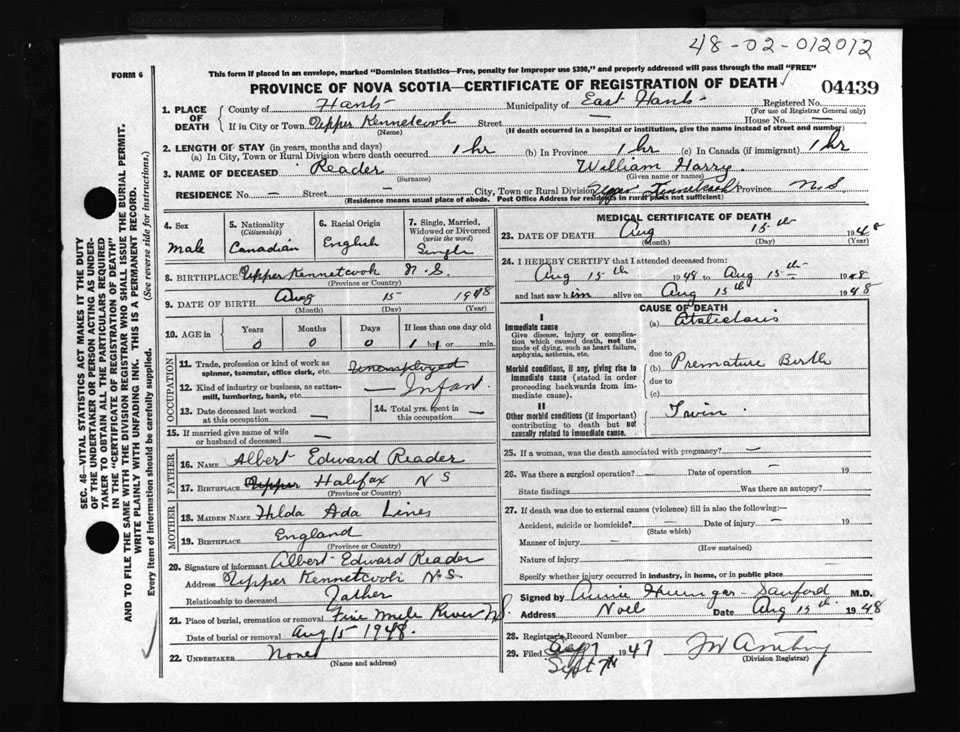 48-02-012012
FORM 6
This form if placed in an envelope, marked "Dominion Statistics—Free, penalty for improper use $300," and properly addressed will pass through the mail "FREE"
PROVINCE OF NOVA SCOTIA—CERTIFICATE OF REGISTRATION OF DEATH ✓ 04439
1. PLACE OF DEATH
County of Hants Municipality of East Hants Registered No.
(For use of Registrar General only)
If in City or Town Upper Kennetcook Street — House No. —
(Name) (If death occurred in a hospital or institution, give the name instead of street and number)
2. LENGTH OF STAY (in years, months and days)
(a) In City, Town or Rural Division where death occurred 1 hr (b) In Province 1 hr (c) In Canada (if immigrant) 1 hr
3. NAME OF DECEASED Reader William Harry
(Surname) (Given name or names)
RESIDENCE No. — Street — City, Town or Rural Division Upper Kennetcook Province N.S.
(Residence means usual place of abode. Post Office Address for residents in rural parts not sufficient)
4. Sex
Male
5. Nationality (Citizenship)
Canadian
6. Racial Origin
English
7. Single, Married, Widowed or Divorced (write the word)
Single
8. BIRTHPLACE Upper Kennetcook N.S.
(Province or Country)
9. DATE OF BIRTH Aug 15 1948
(Month) (Day) (Year)
10. AGE in Years Months Days If less than one day old
0 0 0 1 hr. or min.
OCCUPATION
11. Trade, profession or kind of work as spinner, teamster, office clerk, etc. Unemployed
12. Kind of industry or business, as cotton-mill, lumbering, bank, etc. — Infant
13. Date deceased last worked at this occupation —
14. Total yrs. spent in this occupation —
15. If married give name of wife or husband of deceased —
FATHER
16. NAME Albert Edward Reader
17. BIRTHPLACE Upper Halifax N S
(Province or Country)
MOTHER
18. MAIDEN NAME Hilda Ada Lines
19. BIRTHPLACE England
(Province or Country)
20. Signature of informant Albert Edward Reader
Address Upper Kennetcook N S
Relationship to deceased Father
21. Place of burial, cremation or removal Five Mile River N S
Date of burial or removal Aug 15 1948.
22. UNDERTAKER None
(Name and address)
MEDICAL CERTIFICATE OF DEATH
23. DATE OF DEATH Aug 15th 1948
(Month) (Day) (Year)
24. I HEREBY CERTIFY that I attended deceased from:
Aug 15th 1948 to Aug 15th 1948
and last saw him alive on Aug 15th 1948
CAUSE OF DEATH
I
Immediate cause
Give disease, injury or complication which caused death, not the mode of dying, such as heart failure, asphyxia, asthenia, etc.
(a)
due to
Morbid conditions, if any, giving rise to immediate cause (stated in order proceeding backwards from immediate cause).
(b) Premature Birth
due to
(c)
II
Other morbid conditions (if important) contributing to death but not causally related to immediate cause.
Twin.
25. If a woman, was the death associated with pregnancy? —
26. Was there a surgical operation? — Date of operation — 19
State findings Was there an autopsy?
27. If death was due to external causes (violence) fill in also the following:—
Accident, suicide or homicide? — Date of injury — 19
(State which)
Manner of injury —
(How sustained)
Nature of injury
Specify whether injury occurred in industry, in home, or in public place
Signed by Annie Sanford M.D.
Address Noel Date Aug 15th 1948
28. Registrar's Record Number
29. Filed Sept 7 1947
(Division Registrar)
Sept 7th
SEC. 46—VITAL STATISTICS ACT MAKES IT THE DUTY
OF THE UNDERTAKER OR PERSON ACTING AS UNDER-
TAKER TO OBTAIN ALL THE PARTICULARS REQUIRED
IN THE "CERTIFICATE OF REGISTRATION OF DEATH"
AND TO FILE THE SAME WITH THE DIVISION REGISTRAR WHO SHALL ISSUE THE BURIAL PERMIT.
WRITE PLAINLY WITH UNFADING INK. THIS IS A PERMANENT RECORD.
Every item of Information should be carefully supplied. (See reverse side for instructions.)